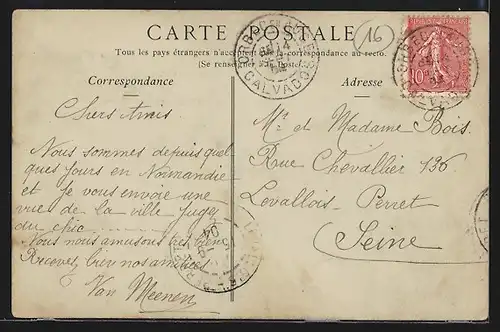 CARTE POSTALE
16
Tous les pays étrangers n'acceptent pas la correspondance au recto.
(Se renseigner à la Poste)
Correspondance
Adresse
ORBEC EN AUGE
CALVADOS
10
Chers Amis.
Nous sommes depuis quel
ques jours en Normandie
et je vous envoie une
vue de la ville jugez
du chic
Nous nous amusons très bien
Recevez bien nos amitiés
Van Meenen
Mr et Madame Bois.
Rue Chevallier 136
Levallois-Perret
(Seine)